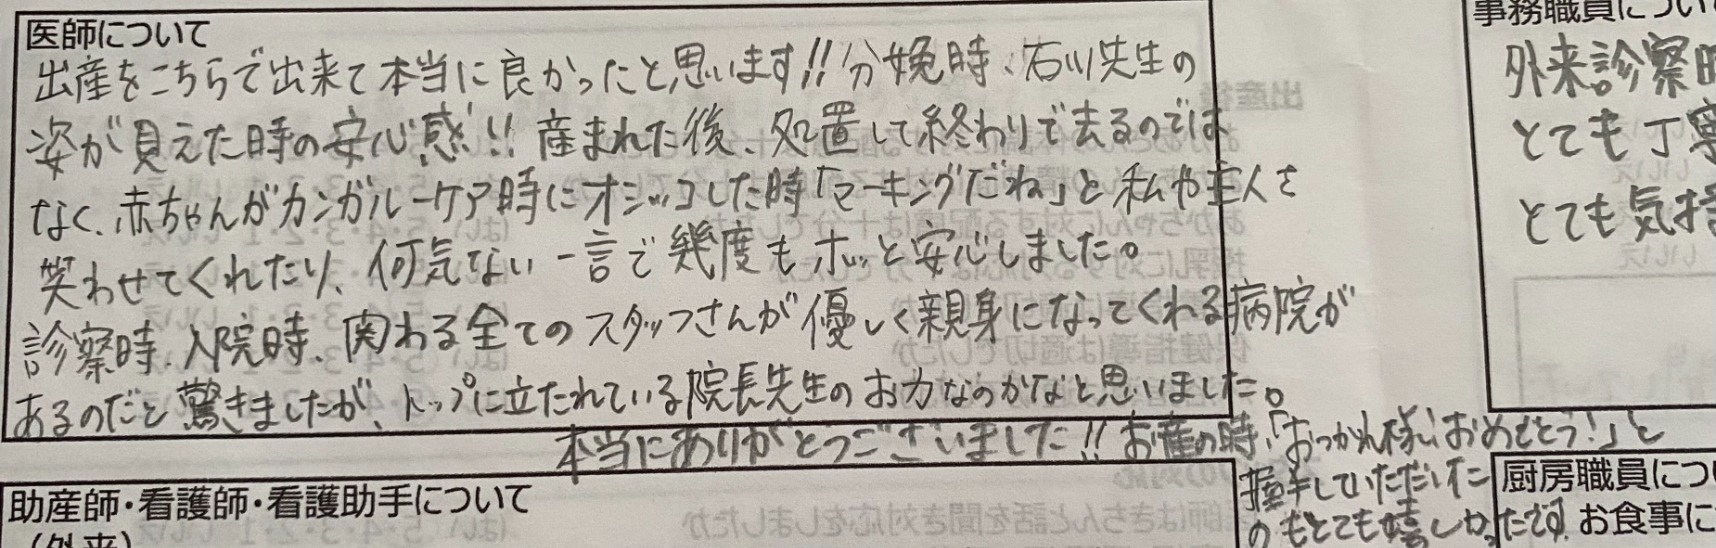 医師について
出産をこちらで出来て本当に良かったと思います!!分娩時、石川先生の
姿が見えた時の安心感!!産まれた後、処置して終わりで去るのでは
なく、赤ちゃんがカンガルーケア時にオシッコした時「マーキングだね」と私や主人を
笑わせてくれたり、何気ない一言で幾度もホッと安心しました。
診察時、入院時、関わる全てのスタッフさんが優しく親身になってくれる病院が
あるのだと驚きましたが、トップに立たれている院長先生のお力なのかなと思いました。
本当にありがとうございました!!お産の時、「おつかれ様!おめでとう!」と
握手していただいた
のもとても嬉しかったです!
事務職員につい
外来診察時
とても丁寧
とても気持
助産師・看護師・看護助手について
(外来)
厨房職員につ
お食事に